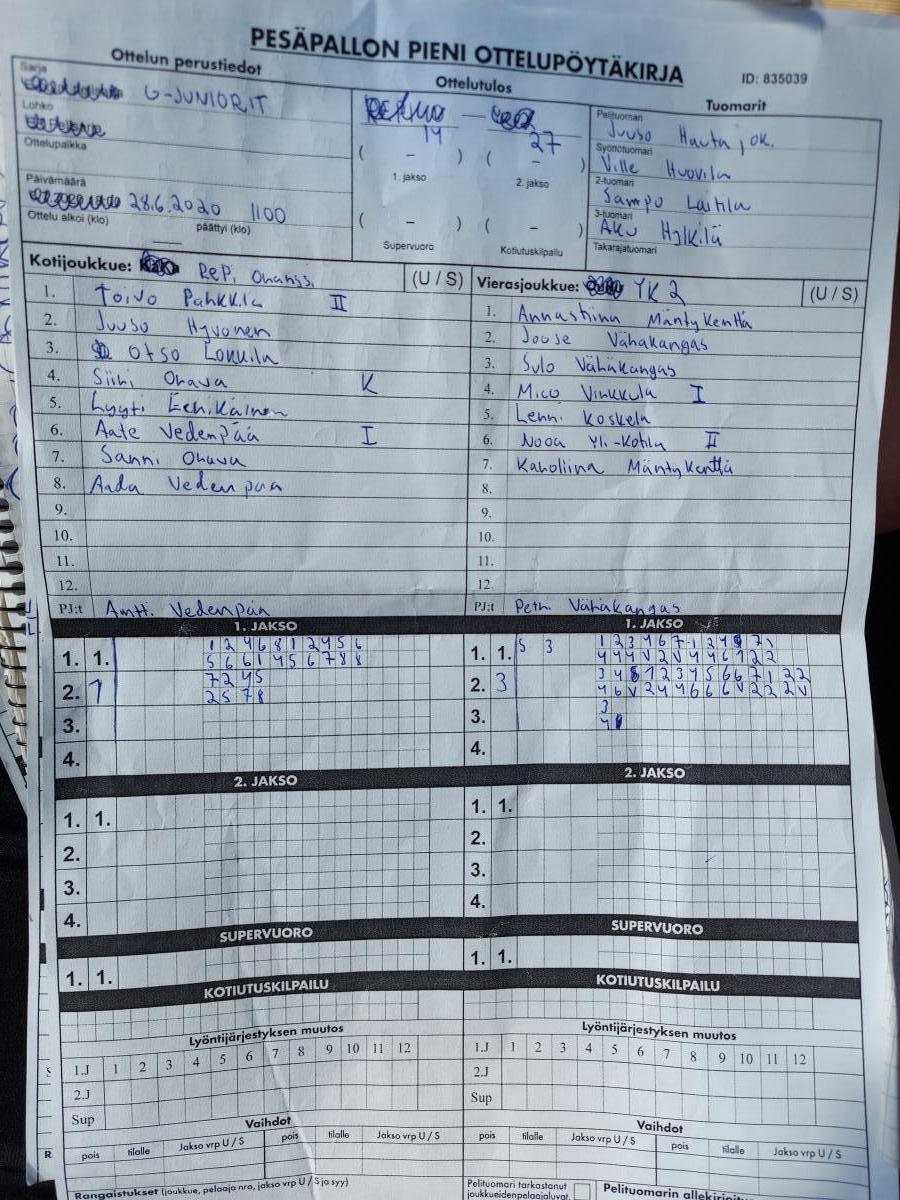 PESÄPALLON PIENI OTTELUPÖYTÄKIRJA
ID: 835039
Ottelun perustiedot
Sarja
G-JUNIORIT
Lohko
Ottelupaikka
Päivämäärä
28.6.2020 1100
Ottelu alkoi (klo) päättyi (klo)
Ottelutulos
14 27
( - ) ( - )
1. jakso 2. jakso
( - ) ( - )
Supervuoro Kotiutuskilpailu
Tuomarit
Pelituomari
Juuso Hautajok.
Syöttötuomari
Ville Huovila
2-tuomari
Sampo Laitila
3-tuomari
Aku Hylkilä
Takarajatuomari
Kotijoukkue: RePi Ohanssi (U / S)
1. Toivo Pahkkila II
2. Juuso Hyvonen
3. Otso
4. Siiri Ohava K
5. Lyyti
6. Aate Vedenpää I
7. Sanni Ohava
8. Aada Vedenpää
9.
10.
11.
12.
PJ:t Antti Vedenpää
Vierasjoukkue: YK 2 (U / S)
1. Annastiina Mäntykenttä
2. Joose Vähäkangas
3. Sulo Vähäkangas
4. Mico Vinkkula I
5. Lenni Koskela
6. Nooa Yli-Kotila II
7. Karoliina Mäntykenttä
8.
9.
10.
11.
12.
PJ:t Petri Vähäkangas
1. JAKSO
1. 1. 1 2 4 6 8 1 2 4 5 6
5 6 6 1 4 5 6 7 8 8
2. 7 2 4 5
2 5 7 8
3.
4.
1. JAKSO
1. 1. 5 3
2. 3
3. 3
4.
2. JAKSO
1. 1.
2.
3.
4.
2. JAKSO
1. 1.
2.
3.
4.
SUPERVUORO
1. 1.
SUPERVUORO
1. 1.
KOTIUTUSKILPAILU
KOTIUTUSKILPAILU
Lyöntijärjestyksen muutos
1.J 1 2 3 4 5 6 7 8 9 10 11 12
2.J
Sup
Lyöntijärjestyksen muutos
1.J 1 2 3 4 5 6 7 8 9 10 11 12
2.J
Sup
Vaihdot
pois tilalle Jakso vrp U / S pois tilalle Jakso vrp U / S
Vaihdot
pois tilalle Jakso vrp U / S pois tilalle Jakso vrp U / S
Rangaistukset (joukkue, pelaaja nro, jakso vrp U / S ja syy)
Pelituomari tarkastanut
joukkueiden pelaajaluvat.
Pelituomarin